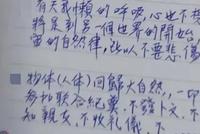 有天我懶的呼吸,心也不想
將是到另一個世界的開始
宙的自然律,所以不要悲傷
物体(人体)回歸大自然,一切
参加联合纪念,不發卜文,不
知親友不收礼儀,不